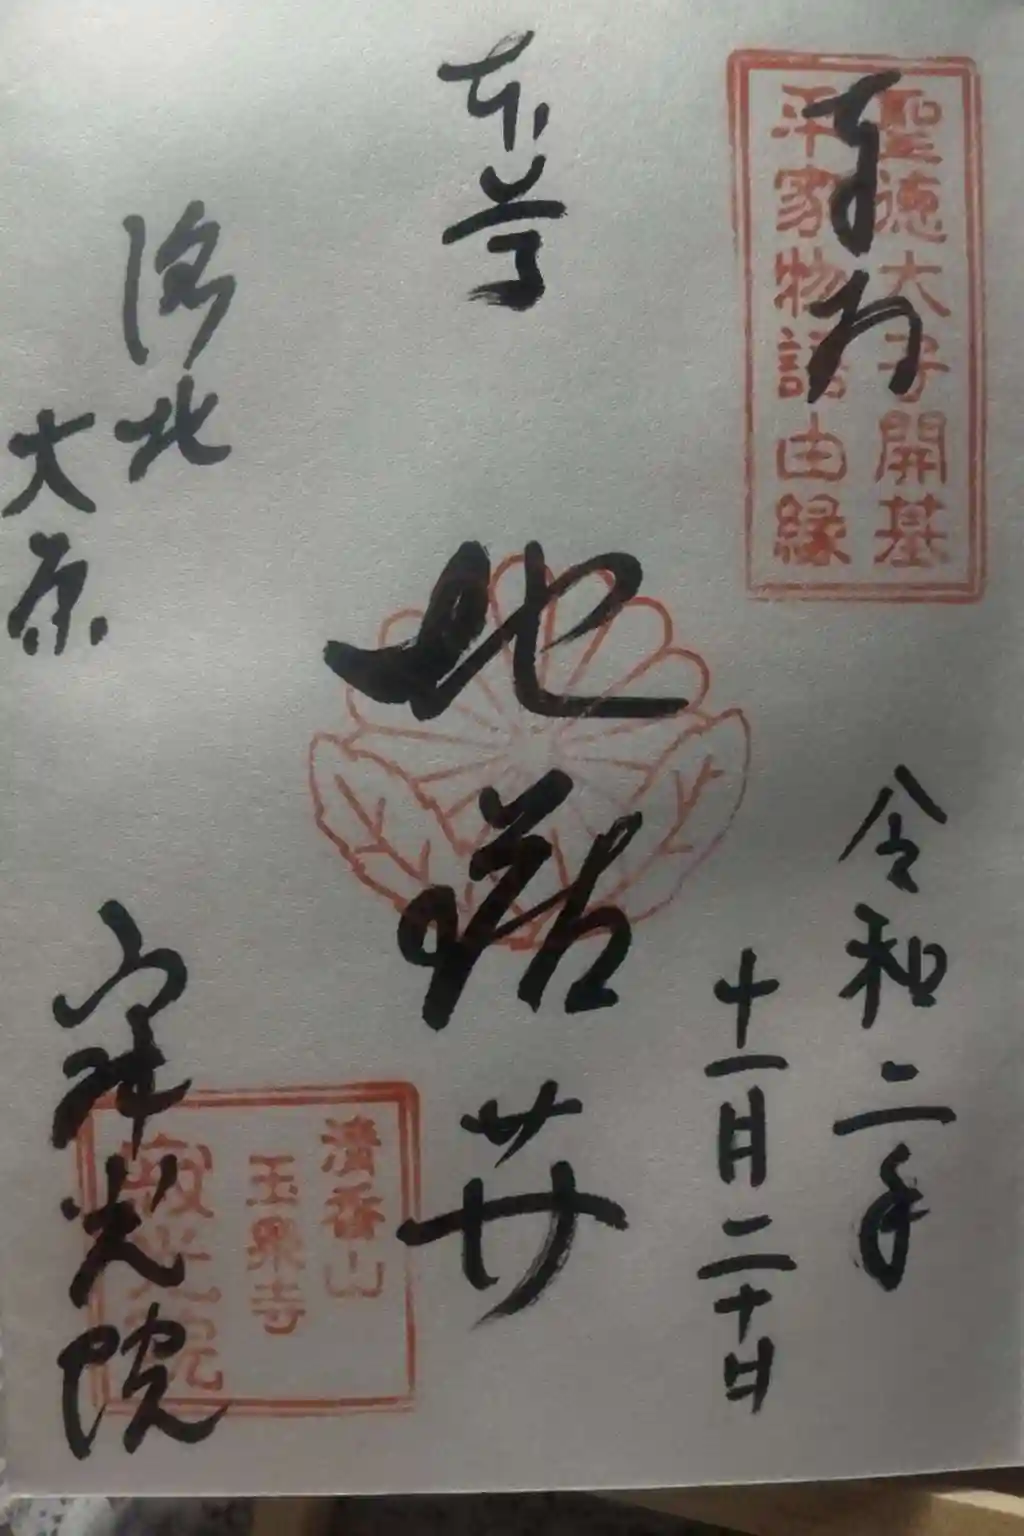 奉拝
聖徳大子開基
平家物語由縁
令和二年
十一月二十日
本尊
地蔵𦬇
洛北
大原
寂光院
清香山
玉泉寺
寂光院